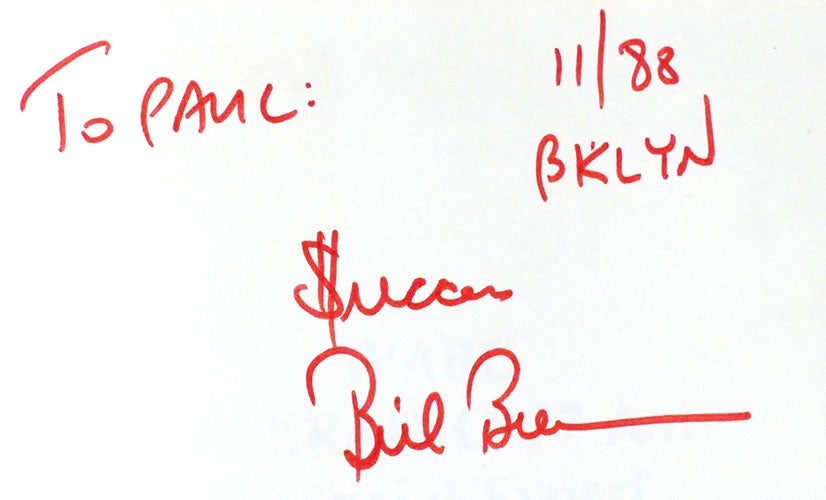 To PAUL:
11/88
BKLYN
$uccess
Bill